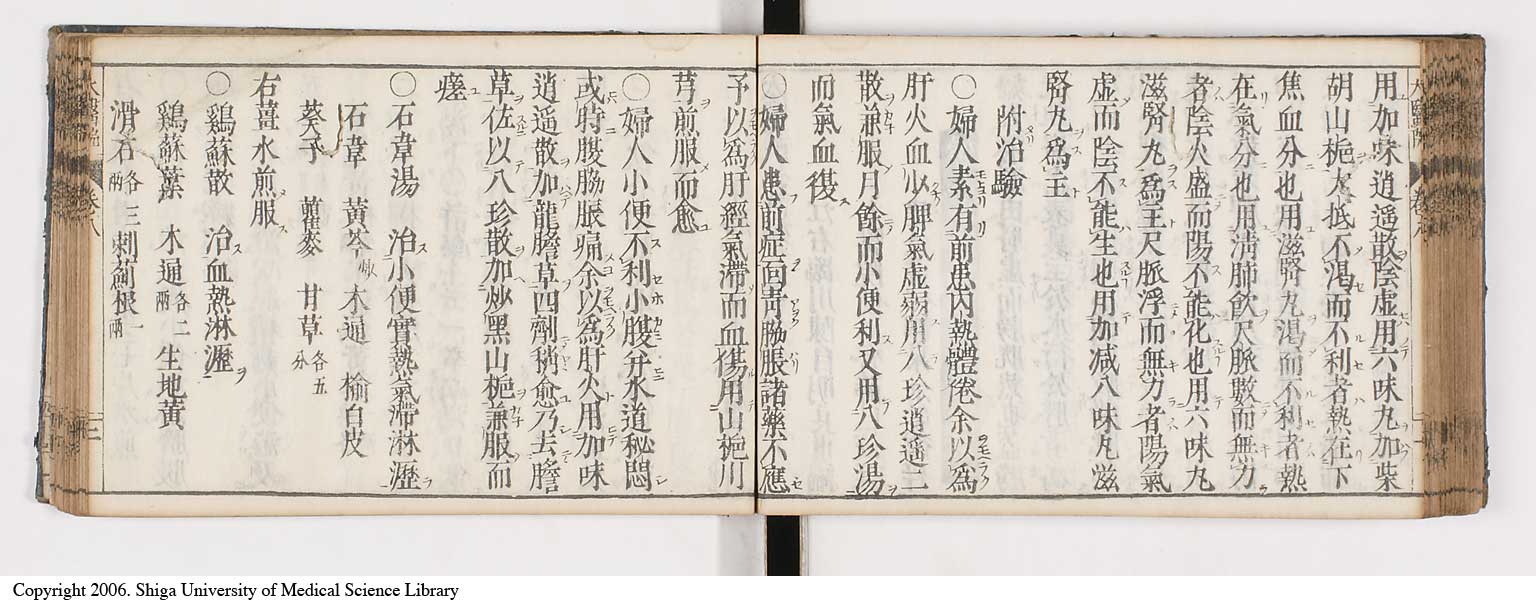 用加味逍遥散陰虚用六味丸加柴
胡山梔大抵不渇而不利者熱在下
焦血分也用滋腎丸渇而不利者熱
在氣分也用淸肺飮尺脈數而無力
者陰火盛而陽不能化也用六味丸
滋腎丸爲主尺脈浮而無力者陽氣
虚而陰不能生也用加减八味丸滋
腎丸爲主
附治驗
〇婦人素有前患内熱體倦余以爲
肝火血少脾氣虚弱用八珍逍遥二
散兼服月餘而小便利又用八珍湯
而氣血復
〇婦人患前症面青脇脹諸藥不應
予以爲肝經氣滯而血傷用山梔川
芎煎服而愈
〇婦人小便不利小腹并水道秘悶
或時腹脇脹痛余以爲肝火用加味
逍遥散加龍膽草四劑稍愈乃去膽
草佐以八珍散加炒黑山梔兼服而
瘥
〇石韋湯 治小便實熱氣滯淋瀝
石韋 黃芩 木通 榆白皮
葵子 瞿麥 甘草各五分
右薑水煎服
〇鷄蘇散 治血熱淋瀝
鷄蘇葉 木通各二兩 生地黃
滑石各三兩 刺薊根一兩
Copyright 2006. Shiga University of Medical Science Library